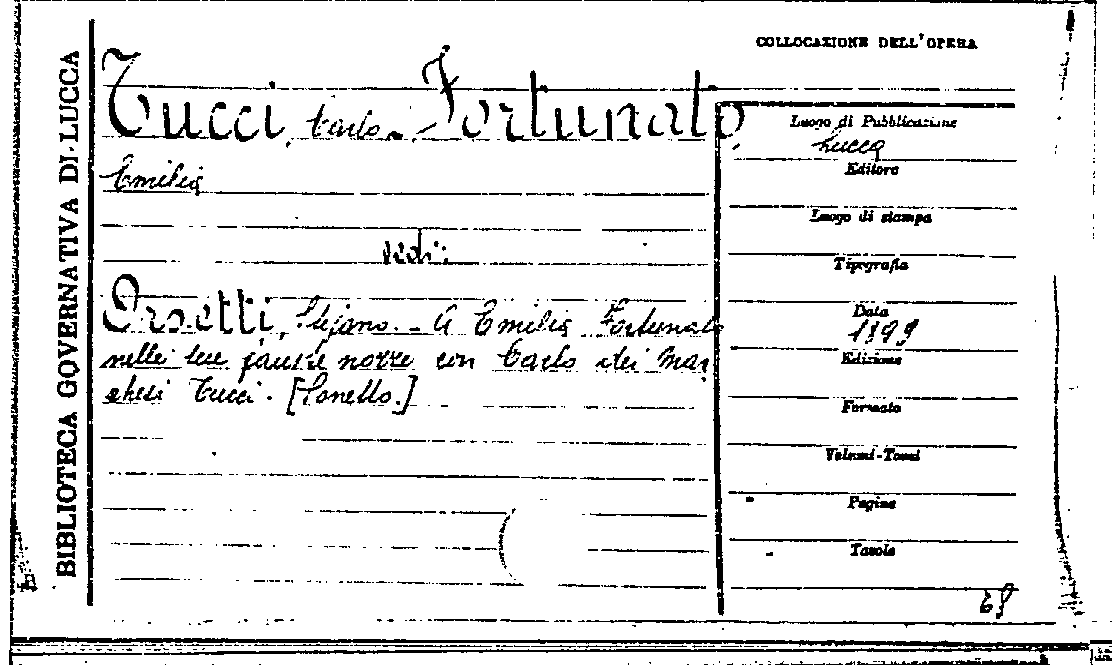 BIBLIOTECA GOVERNATIVA DI LUCCA
COLLOCAZIONE DELL'OPERA
Tucci, Carlo - Fortunato,
Emilia
vedi:
Orsetti, Stefano. - A Emilia Fortunato
nelle sue fauste nozze con Carlo dei Mar
chesi Tucci. [Sonetto.]
Luogo di Pubblicazione
Lucca
Editore
Luogo di stampa
Tipografia
Data
1899
Edizione
Formato
Volumi-Tomi
Pagine
Tavole